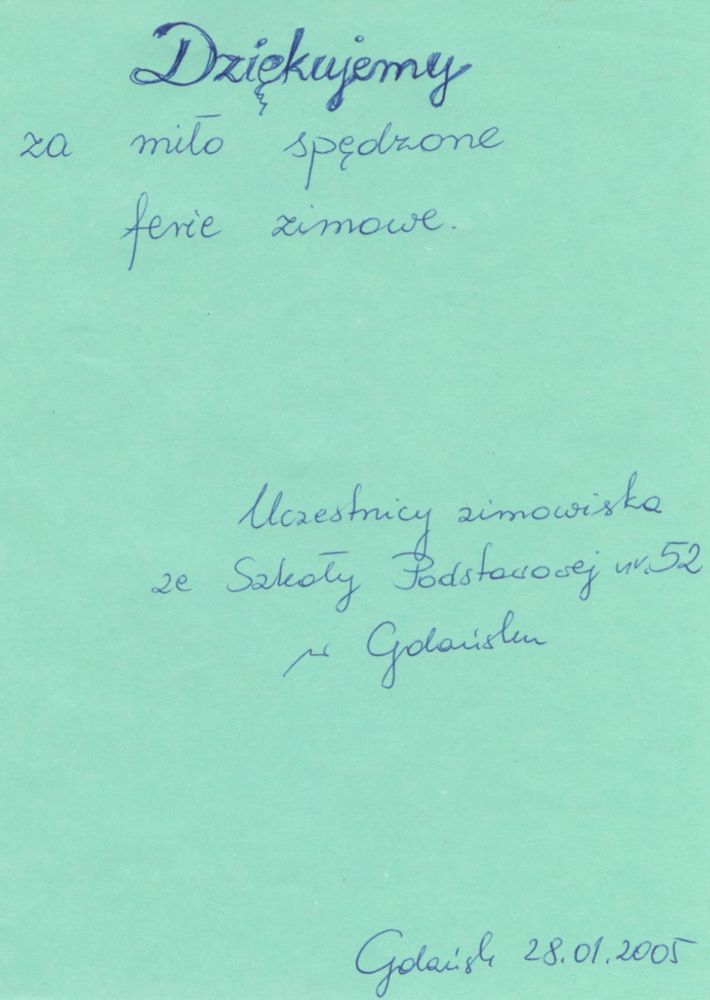 Dziękujemy
za miło spędzone
ferie zimowe.
Uczestnicy zimowiska
ze Szkoły Podstawowej nr.52
w Gdańsku
Gdańsk 28.01.2005